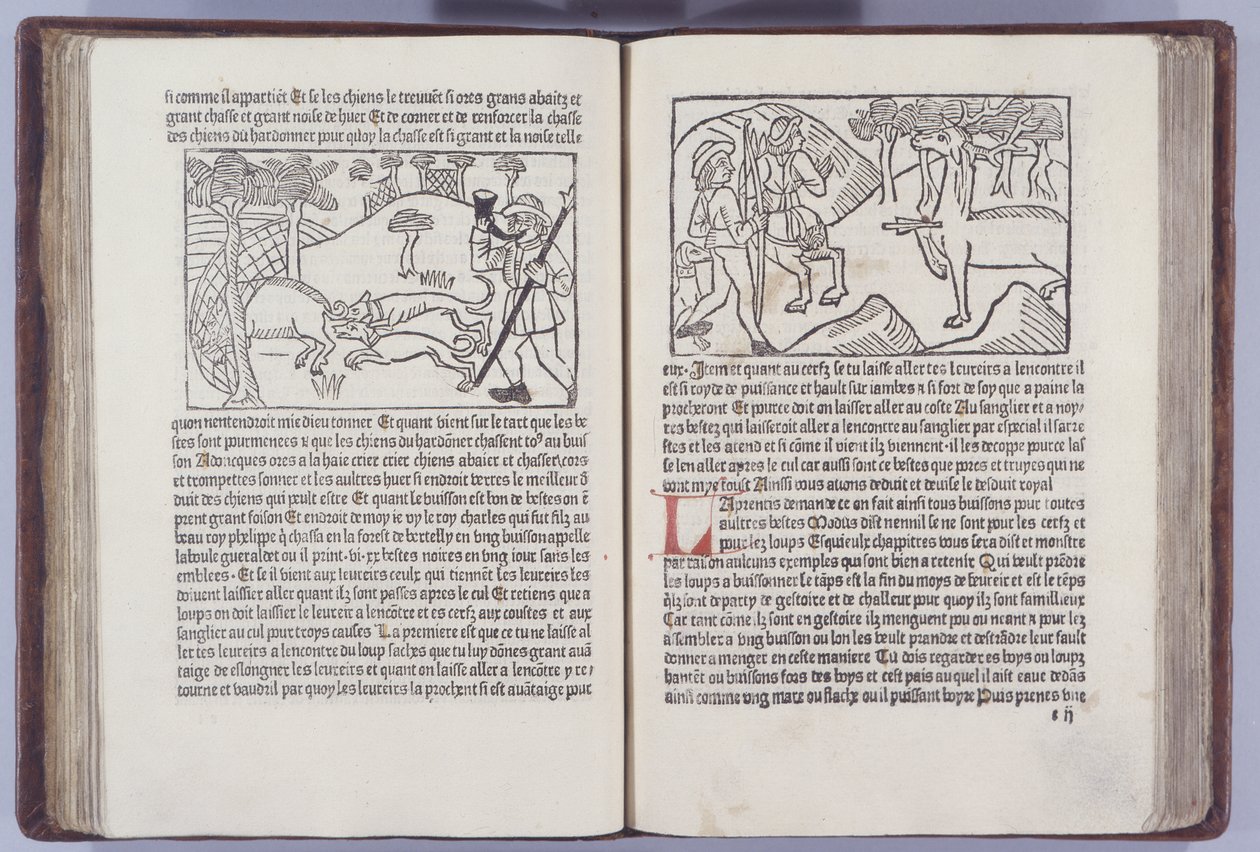 si comme il appartiēt Et se les chiens le treuuēt si ores grans abaitz et
grant chasse et grant noise de huer Et de corner et de renforcer la chasse
des chiens du hardonner pour quoy la chasse est si grant et la noise telle
quon nentendroit mie dieu tonner Et quant vient sur le tart que les be
stes sont pourmenees ⁊ que les chiens du hardōner chassent toꝰ au buis
son Adoncques ores a la haie crier crier chiens abaier et chasser cors
et trompettes sonner et les aultres huer si endroit verres le meilleur d
duit des chiens qui puit estre Et quant le buisson est bon de bestes on ē
prent grant foison Et endroit de moy ie vy le roy charles qui fut filz au
beau roy phelippe q̄ chassa en la forest de bertelly en vng buisson appelle
la boule gueraldet ou il print .vi.xx bestes noires en vng iour sans les
emblees. Et se il vient aux leureirs ceulx qui tiennēt les leureirs les
doiuent laissier aller quant ilz sont passes apres le cul Et retiens que a
loups on doit laissier le leureir a lencōtre et es cerfz aux coustes et aux
sanglier au cul pour troys causes La premiere est que ce tu ne laisse al
ler tes leureirs a lencontre du loup saches que tu luy dōnes grant auā
taige de eslongner les leureirs et quant on laisse aller a lencōtre y re
tourne et vaudril par quoy les leureirs la prochent si est auātaige pour
eux. Item et quant au cerfz se tu laisse aller tes leureirs a lencontre il
est si royde de puissance et hault sur iambes ⁊ si fort de soy que a paine la
procheront Et pource doit on laisser aller au coste Au sanglier et a noy
res bestez qui laisseroit aller a lencontre au sanglier par especial il sarre
stes et les atend et si cōme il vient ilz viennent. il les decoppe pource las
se len aller apres le cul car aussi sont ce bestes que pores et truyes qui ne
vont mye toust Ainssi vous auons deduit et deuise le desduit royal
LAprentis demande ce on fait ainsi tous buissons pour toutes
aultres bestes Modus dist nennil se ne sont pour les cerfz et
pour lez loups Esquieulx chappitres vous sera dist et monstre
par raison aulcuns exemples qui sont bien a retenir Qui veult prēdre
les loups a buissonner le tāps est la fin du moys de feureir et est le tēps
q̄lz sont de party de gestoire et de challeur pour quoy ilz sont famillieux
Car tant cōme ilz sont en gestoire ilz menguent pou ou neant ⁊ pour lez
assembler a vng buisson ou lon les veult prandre et destrādre leur fault
donner a menger en ceste maniere Tu dois regarder es boys ou loupz
hantēt ou buissons fors des boys et cest pais au quel il aist eaue dedās
ainsi comme vng mare ou flache ou il puissant boyre Puis prenes vne
e ij